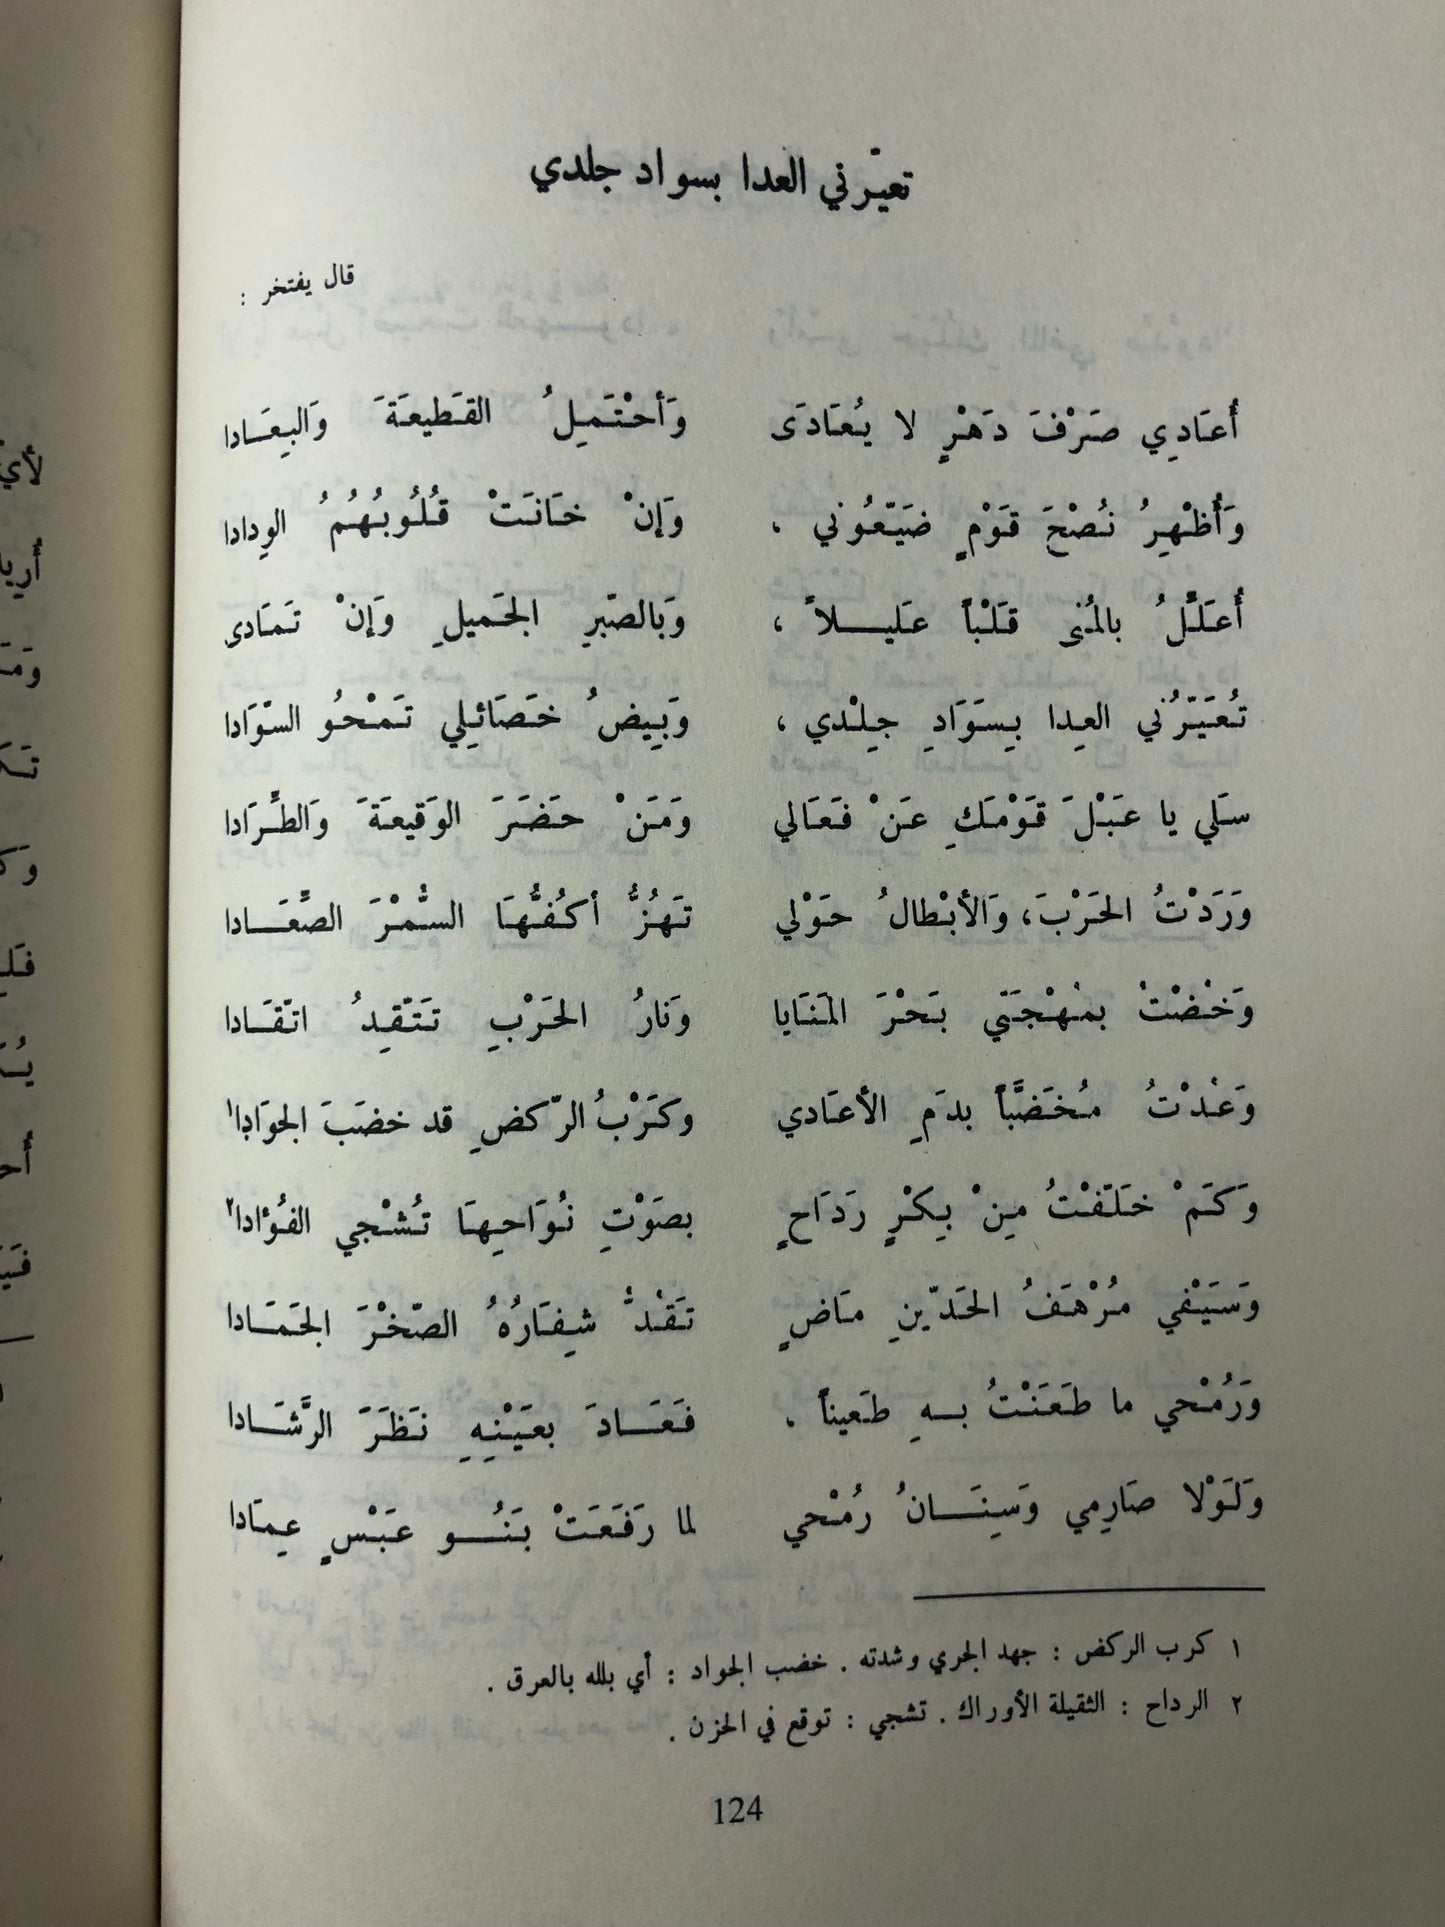 تعيّرني العدا بسواد جلدي
قال يفتخر :
أُعَادِي صَرْفَ دَهْرٍ لا يُعَادَى وَأحْتَمِلُ القَطيعَةَ وَالبِعَادا
وَأُظْهِرُ نُصْحَ قَوْمٍ ضَيّعُوني ، وَإنْ خانَتْ قُلُوبُهُمُ الوِدادا
أُعَلِّلُ بالمُنى قَلْباً عَليلاً ، وَبالصّبرِ الجَميلِ وَإنْ تَمَادى
تُعَيّرُني العِدا بِسَوَادِ جِلْدي ، وَبِيضُ خَصَائِلي تَمْحُو السّوَادا
سَلي يا عَبْلَ قَوْمَكِ عَنْ فَعَالي وَمَنْ حَضَرَ الوَقيعَةَ وَالطِّرَادا
وَرَدْتُ الحَرْبَ، وَالأبْطالُ حَوْلي تَهُزُّ أكُفُّهَا السُّمْرَ الصِّعَادا
وَخُضْتُ بمُهْجَتي بَحْرَ المَنَايا وَنارُ الحَرْبِ تَتّقِدُ اتّقَادا
وَعُدْتُ مُخَضَّباً بدَمِ الأعَادي وكَرْبُ الرّكضِ قد خضَبَ الجوَادا١
وَكَمْ خَلّفْتُ مِنْ بِكْرٍ رَدَاحٍ بصَوْتِ نُوَاحِهَا تُشْجي الفُؤادا٢
وَسَيْفي مُرْهَفُ الحَدّينِ مَاضٍ تَقُدُّ شِفَارُهُ الصّخْرَ الجَمَادا
وَرُمْحي ما طَعَنْتُ بهِ طَعيناً ، فَعَادَ بعَيْنِهِ نَظَرَ الرَّشَادا
وَلَوْلا صَارِمي وَسِنَانُ رُمْحي لما رَفَعَتْ بَنُو عَبْسٍ عِمَادا
١ كرب الركض : جهد الجري وشدته . خضب الجواد : أي بلله بالعرق .
٢ الرداح : الثقيلة الأوراك . تشجي : توقع في الحزن .
124